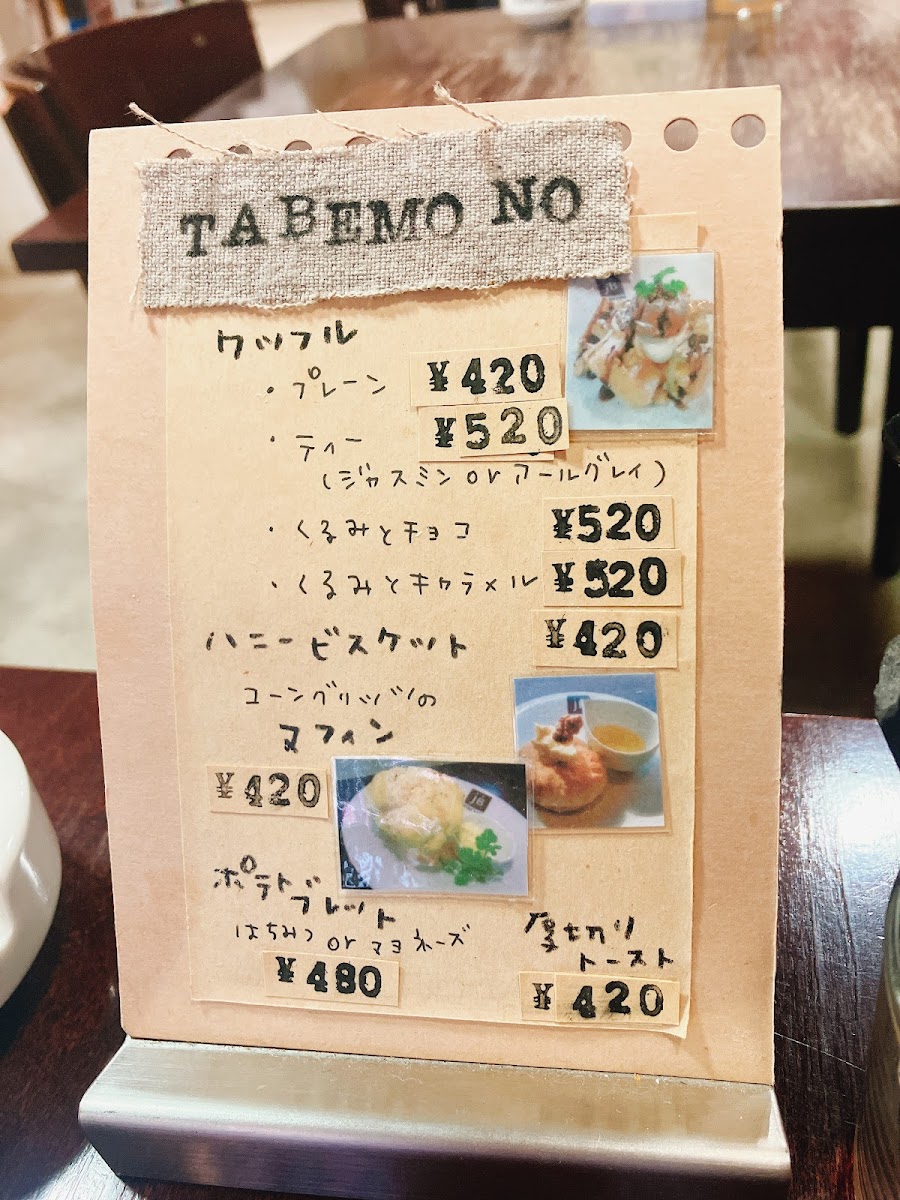 TABEMO NO
ワッフル
・プレーン ¥420
・ティー ¥520
(ジャスミン or アールグレイ)
・くるみとチョコ ¥520
・くるみとキャラメル ¥520
ハニービスケット ¥420
コーングリッツの
マフィン
¥420
ポテトブレット
はちみつ or マヨネーズ
¥480
厚切り
トースト
¥420